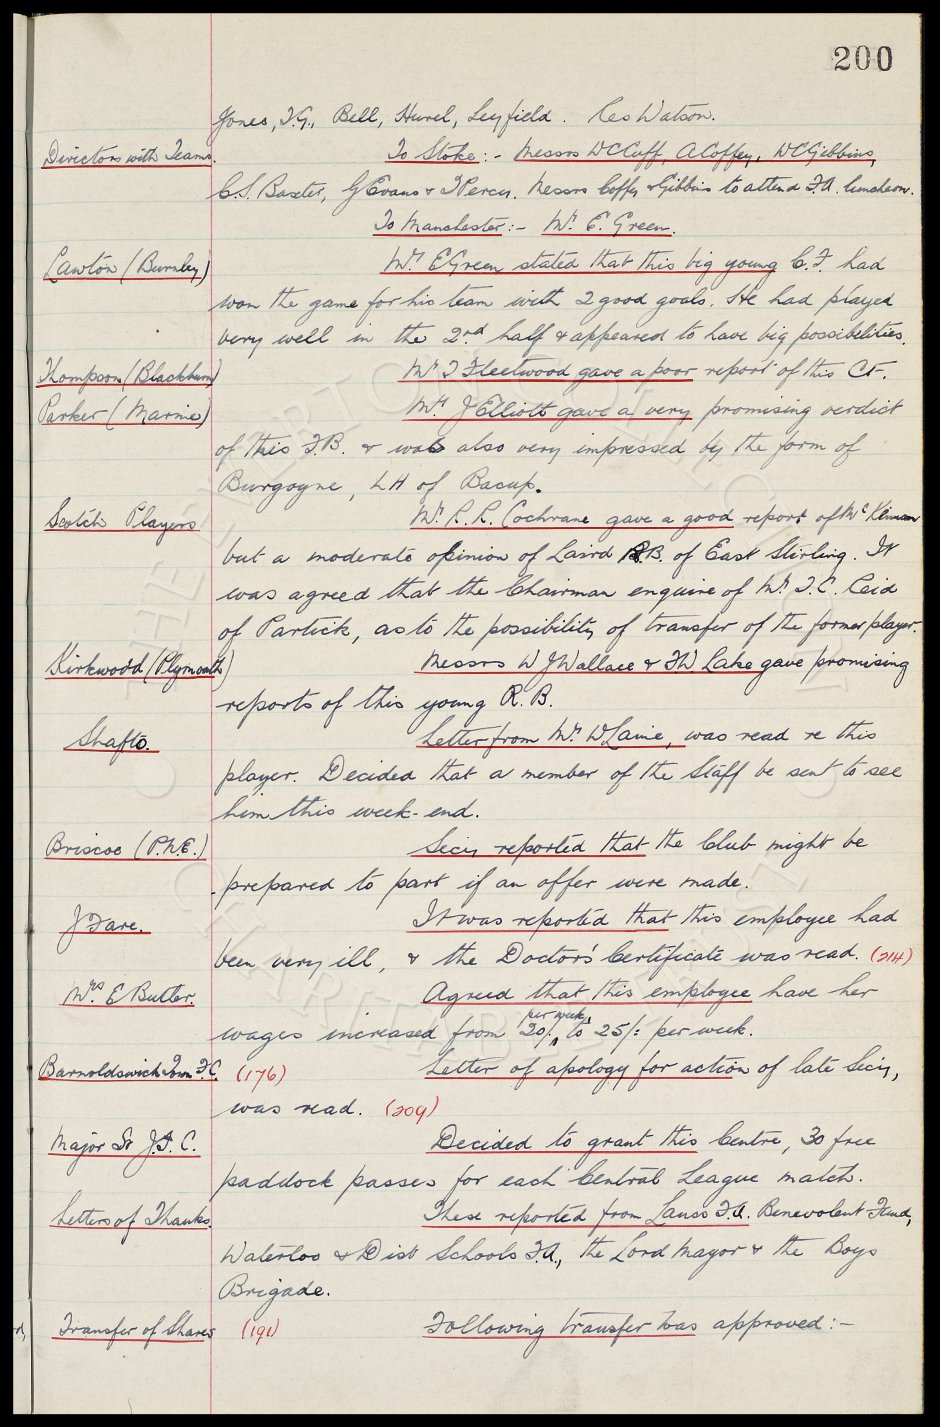 200
Jones, T.G., Bell, Hurel, Leyfield. Res Watson.
Directors with Teams. To Stoke:- Messrs W C Cuff, A Coffey, W C Gibbins,
C.S. Baxter, G Evans & T Percy. Messrs Coffey & Gibbins to attend F.A. luncheon.
To Manchester:- Mr. E. Green.
Lawton (Burnley) Mr. E Green stated that this big young C.F. had
won the game for his team with 2 good goals. He had played
very well in the 2nd half & appeared to have big possibilities.
Thompson (Blackburn) Mr T Fleetwood gave a poor report of this CF.
Parker (Marine) Mr. J Elliott gave a very promising verdict
of this F.B. & was also very impressed by the form of
Burgoyne, LH of Bacup.
Scotch Players Mr. R. R. Cochrane gave a good report of McKlinnan
but a moderate opinion of Laird R.B. of East Stirling. It
was agreed that the Chairman enquire of Mr. T.C. Reid
of Partick, as to the possibility of transfer of the former player.
Kirkwood (Plymouth) Messrs W J Wallace & F W Lake gave promising
reports of this young R.B.
Shafto. Letter from Mr. W Laine, was read re this
player. Decided that a member of the Staff be sent to see
him this week-end.
Briscoe (P.N.E.) Secy reported that the Club might be
prepared to part if an offer were made.
J Fare. It was reported that this employee had
been very ill, & the Doctor's Certificate was read. (214)
Mrs. E Butler. Agreed that this employee have her
per week
wages increased from 20/- to 25/: per week.
Barnoldswick Town F.C. (176) Letter of apology for action of late Secy,
was read. (209)
Major St J.I.C. Decided to grant this Centre, 30 free
paddock passes for each Central League match.
Letters of Thanks. These reported from Lancs F.A. Benevolent Fund,
Waterloo & Dist Schools F.A., the Lord Mayor & the Boys
Brigade.
Transfer of Shares (191) Following transfer was approved:-